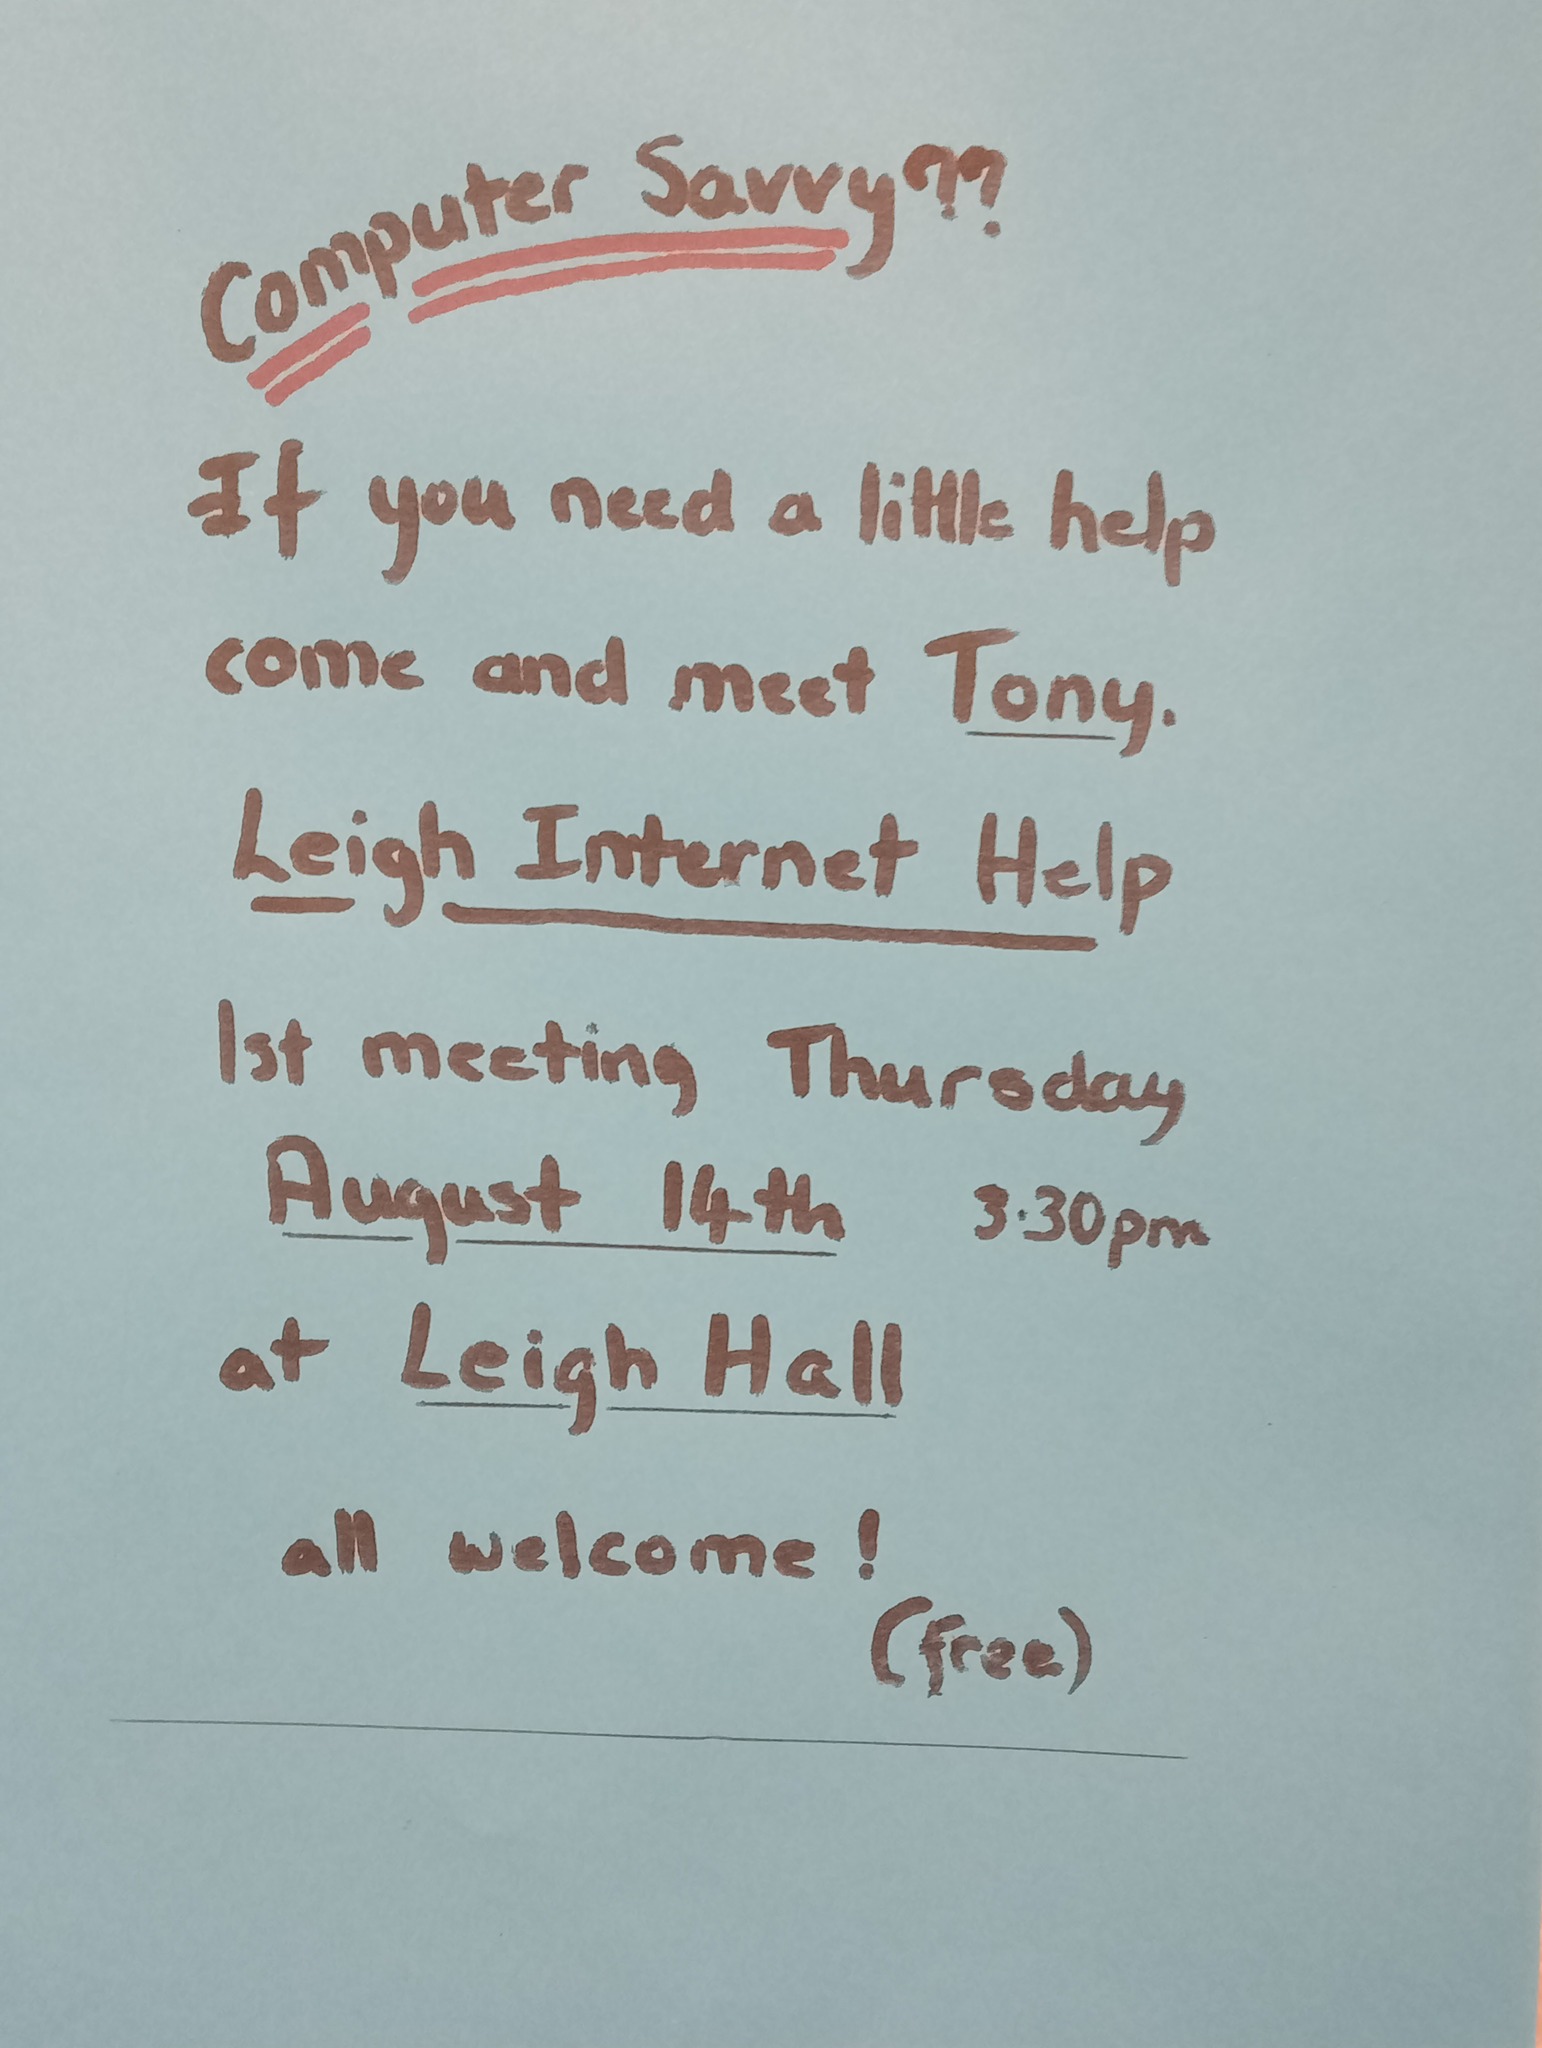 Computer Savvy??
If you need a little help
come and meet Tony.
Leigh Internet Help
1st meeting Thursday
August 14th 3.30pm
at Leigh Hall
all welcome!
(free)